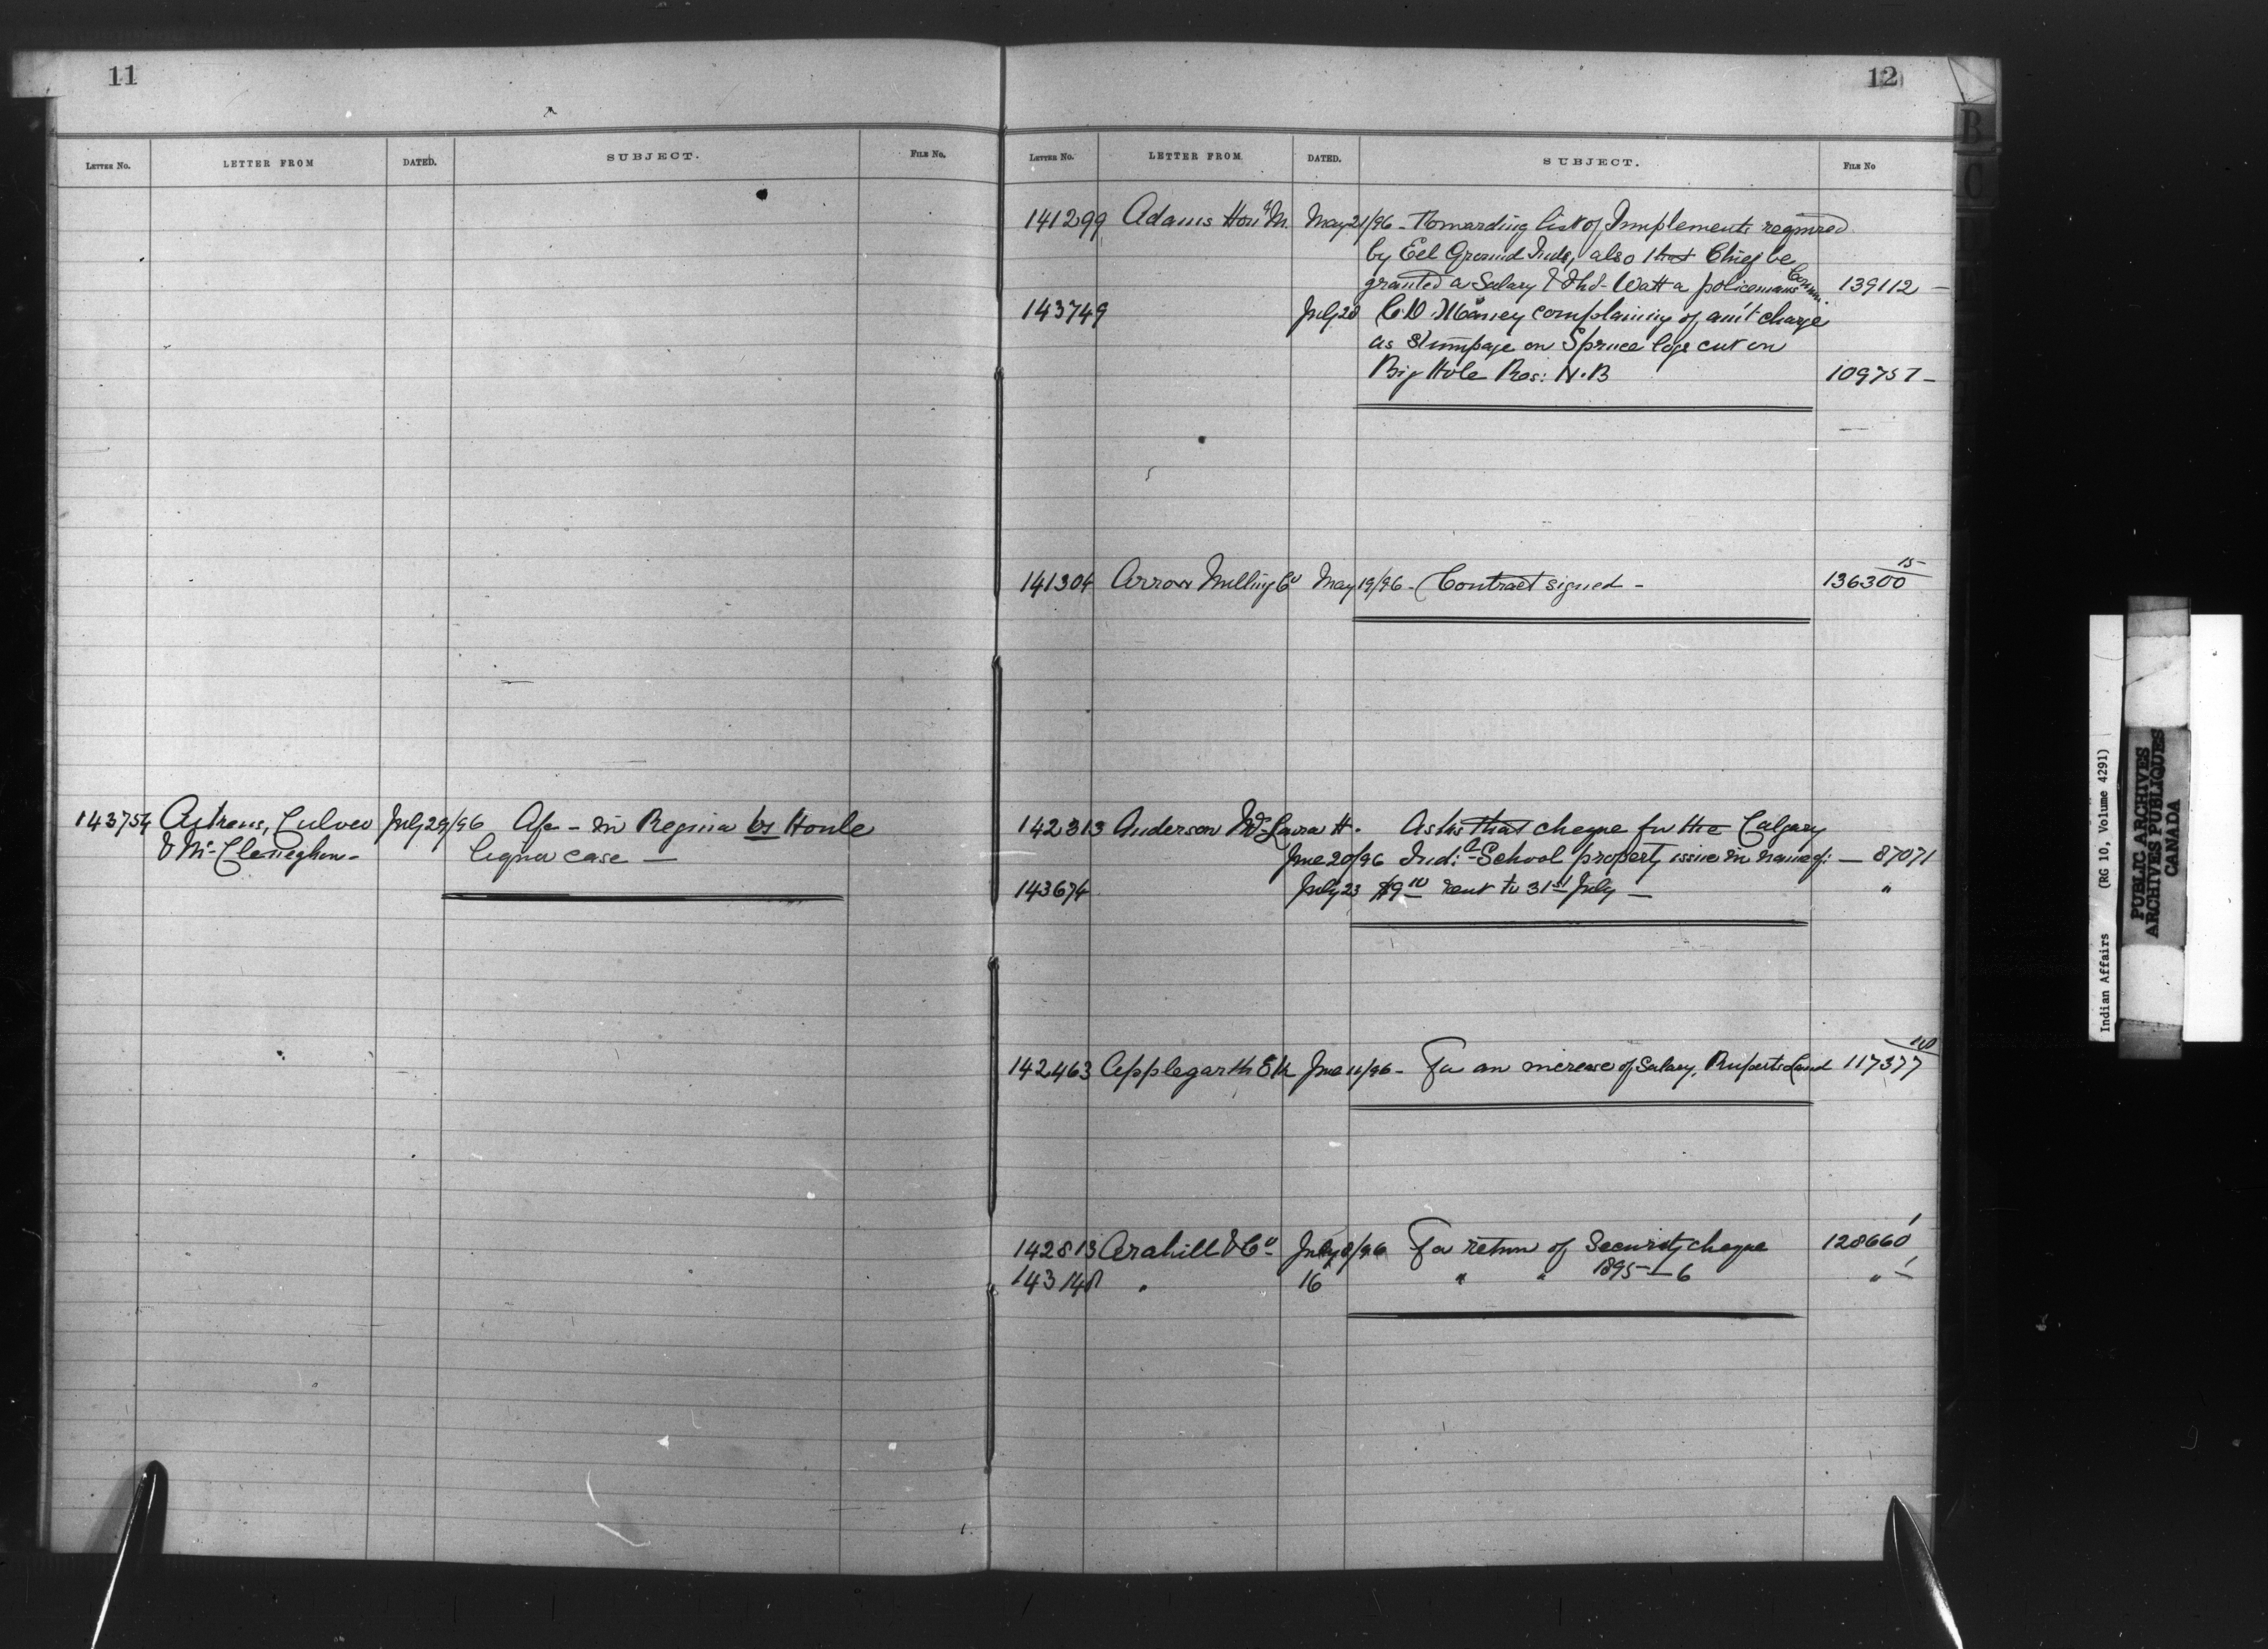 11
LETTER No. LETTER FROM DATED. SUBJECT. FILE No.
143754 Culver July 29/96 in Regina vs Houle
& Mc Cleneghan - liquor case —
12
LETTER No. LETTER FROM. DATED. SUBJECT. FILE No
141299 Adams Hon M. May 21/96 - Forwarding list of Implements required
by Eel Ground Inds, also that Chief be
granted a Salary & Watt a policemans Comm. 139112 —
143749 July 28 complaining of am't charge
as Stumpage on Spruce logs cut on
Big Hole Res: N.B 109757 —
141304 Arrow Milling Co May 19/96 - Contract signed - 136300 15
142313 Anderson Mrs Laura H. Asks that cheque for the Calgary
June 20/96 Ind: School property issue in name of: — 87071
143674 July 23 $9 10 rent to 31st July — "
142463 Applegarth June 11/96 - For an increase of Salary, Ruperts Land 117377
142813 Arahill & Co July 8/96 For return of Security cheque 128660 1
143148 " 16 " " 1895-6 " 1
B
C
Indian Affairs (RG 10, Volume 4291)
PUBLIC ARCHIVES
ARCHIVES PUBLIQUES
CANADA